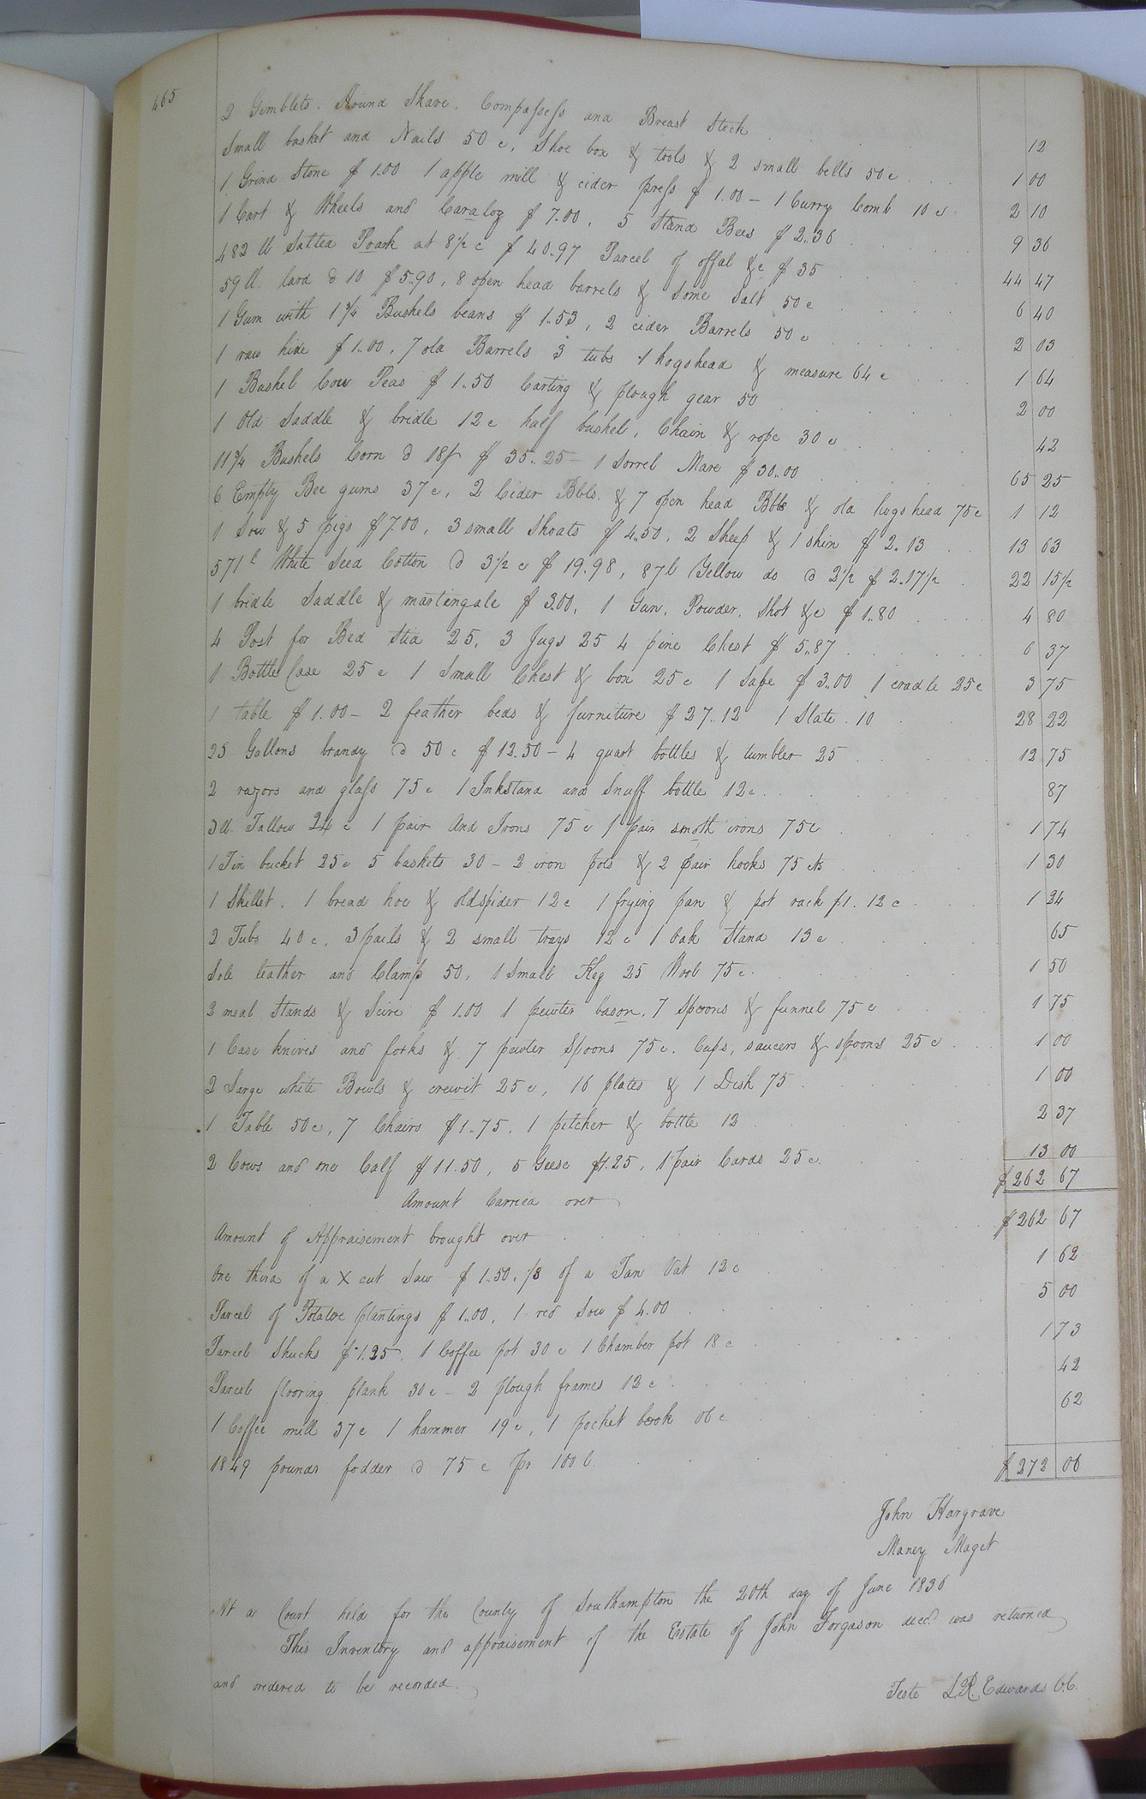 465
2 Gimblets. Round Shave. Compassess and Breast Stock 12
Small basket and Nails 50 c, Shoe box & tools & 2 small bells 50 c 1 00
1 Grind Stone $1.00 1 apple mill & cider press $1.00 - 1 Curry Comb 10 c 2 10
1 Cart & Wheels and Caralog $7.00, 5 Stand Bees $2.36 9 36
482 lb Salted Poark at 8½ c $40.97 Parcel of offal &c $35 44 47
59 ll. lard @ 10 $5.90, 8 open head barrels & Some Salt 50 c 6 40
1 Gum with 1¾ Bushels beans $1.53, 2 cider Barrels 50 c 2 03
1 raw hide $1.00, 7 old Barrels 3 tubs 1 hogshead & measure 64 c 1 64
1 Bushel Cow Peas $1.50 Carting & plough gear 50 2 00
1 Old Saddle & bridle 12 c half bushel, Chain & rope 30 c 42
11¾ Bushels Corn @ 18/ $35.25 - 1 Sorrel Mare $30.00 65 25
6 Empty Bee gums 37 c, 2 Cider Bbls. & 7 open head Bbls & old hogshead 75 c 1 12
1 Sow & 5 pigs $7.00, 3 small Shoats $4.50, 2 Sheep & 1 skin $2.13 13 63
571 l White Seed Cotton @ 3½ c $19.98, 87 l Yellow do @ 2½ $2.17½ 22 15½
1 bridle Saddle & martengale $3.00, 1 Gun, Powder, Shot &c $1.80 4 80
4 Post for Bed Stid 25, 3 Jugs 25 4 pine Chest $5.87 6 37
1 Bottle Case 25 c 1 Small Chest & box 25 c 1 Safe $3.00 1 cradle 25 c 3 75
1 table $1.00 - 2 feather beds & furniture $27.12 1 Slate 10 28 22
25 Gallons brandy @ 50 c $12.50 - 4 quart bottles & tumbler 25 12 75
2 razors and glass 75 c 1 Inkstand and Snuff bottle 12 c. 87
3 ll. Tallow 24 c 1 pair And Irons 75 c 1 pair smoth irons 75 c 1 74
1 Tin bucket 25 c 5 baskets 30 - 2 iron pots & 2 pair hooks 75 cts 1 30
1 Skillet. 1 bread hoe & old spider 12 c 1 frying pan & pot rack $1.12 c 1 24
2 Tubs 40 c. 3 pails & 2 small trays 12 c 1 Oak Stand 13 c 65
Sole leather and Clamp 50, 1 Small Keg 25 Wool 75 c. 1 50
3 meal Stands & Seive $1.00 1 pewter bason. 7 Spoons & funnel 75 c 1 75
1 Case knives and forks & 7 pewter Spoons 75 c. Cups, saucers & spoons 25 c 1 00
2 Large white Bowls & crewit 25 c, 16 plates & 1 Dish 75 1 00
1 Table 50 c, 7 Chairs $1.75. 1 pitcher & bottle 12 2 37
2 Cows and one Calf $11.50, 5 Geese $1.25, 1 pair Cards 25 c. 13 00
Amount Carried over $262 67
Amount of Appraisement brought over $262 67
One third of a X cut Saw $1.50, ⅛ of a Tan Vat 12 c 1 62
Parcel of Potatoe plantings $1.00, 1 red Sow $4.00 5 00
Parcel Shucks $1.25. 1 Coffee pot 30 c 1 Chamber pot 18 c 1 73
Parcel flooring plank 30 c - 2 plough frames 12 c 42
1 Coffee mill 37 c 1 hammer 19 c, 1 pocket book 06 c 62
1849 pounds fodder @ 75 c pr 100 l.
$272 06
John Hargrave
Maney Maget
At a Court held for the County of Southampton the 20th day of June 1836
This Inventory and appraisement of the Estate of John Forgason decd. was returned
and ordered to be recorded.
Teste L.R. Edwards C.C.